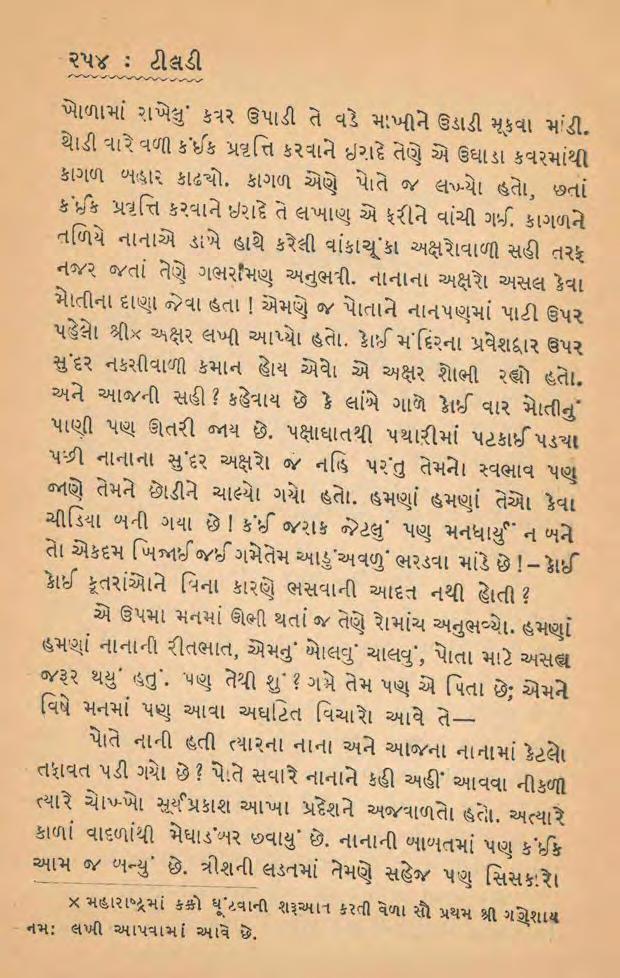 ૨૫૪ : ટીલડી
ખોળામાં રાખેલું કવર ઉપાડી તે વડે માખીને ઉડાડી મૂકવા માંડી.
થોડી વારે વળી કંઈક પ્રવૃત્તિ કરવાને ઇરાદે તેણે એ ઉઘાડા કવરમાંથી
કાગળ બહાર કાઢ્યો. કાગળ એણે પોતે જ લખ્યો હતો, છતાં
કંઈક પ્રવૃત્તિ કરવાને ઇરાદે તે લખાણ એ ફરીને વાંચી ગઈ. કાગળને
તળિયે નાનાએ ડાબે હાથે કરેલી વાંકાચૂંકા અક્ષરોવાળી સહી તરફ
નજર જતાં તેણે ગભરામણ અનુભવી. નાનાના અક્ષરો અસલ કેવા
મોતીના દાણા જેવા હતા ! એમણે જ પોતાને નાનપણમાં પાટી ઉપર
પહેલો શ્રી× અક્ષર લખી આપ્યો હતો. કોઈ મંદિરના પ્રવેશદ્વાર ઉપર
સુંદર નકસીવાળી કમાન હોય એવો એ અક્ષર શોભી રહ્યો હતો.
અને આજની સહી ? કહેવાય છે કે લાંબે ગાળે કોઈ વાર મોતીનું
પાણી પણ ઊતરી જાય છે. પક્ષાઘાતથી પથારીમાં પટકાઈ પડ્યા
પછી નાનાના સુંદર અક્ષરો જ નહિ પરંતુ તેમનો સ્વભાવ પણ
જાણે તેમને છોડીને ચાલ્યો ગયો હતો. હમણાં હમણાં તેઓ કેવા
ચીડિયા બની ગયા છે ! કંઈ જરાક જેટલું પણ મનધાર્યું ન બને
તો એકદમ ખિજાઈ જઈ ગમેતેમ આડુંઅવળું ભરડવા માંડે છે !– કોઈ
કોઈ કૂતરાંઓને વિના કારણે ભસવાની આદત નથી હોતી ?
એ ઉપમા મનમાં ઊભી થતાં જ તેણે રોમાંચ અનુભવ્યો. હમણાં
હમણાં નાનાની રીતભાત, એમનું બોલવું ચાલવું, પોતા માટે અસહ્ય
જરૂર થયું હતું. પણ તેથી શું ? ગમે તેમ પણ એ પિતા છે; એમને
વિષે મનમાં પણ આવા અઘટિત વિચારો આવે તે—
પોતે નાની હતી ત્યારના નાના અને આજના નાનામાં કેટલો
તફાવત પડી ગયો છે ? પોતે સવારે નાનાને કહી અહીં આવવા નીકળી
ત્યારે ચોખ્ખો સૂર્યપ્રકાશ આખા પ્રદેશને અજવાળતો હતો. અત્યારે
કાળાં વાદળાંથી મેઘાડંબર છવાયું છે. નાનાની બાબતમાં પણ કંઈક
આમ જ બન્યું છે. ત્રીશની લડતમાં તેમણે સહેજ પણ સિસકારો
× મહારાષ્ટ્રમાં કક્કો ઘૂંટવાની શરૂઆત કરતી વેળા સૌ પ્રથમ શ્રી ગણેશાય
નમ: લખી આપવામાં આવે છે.